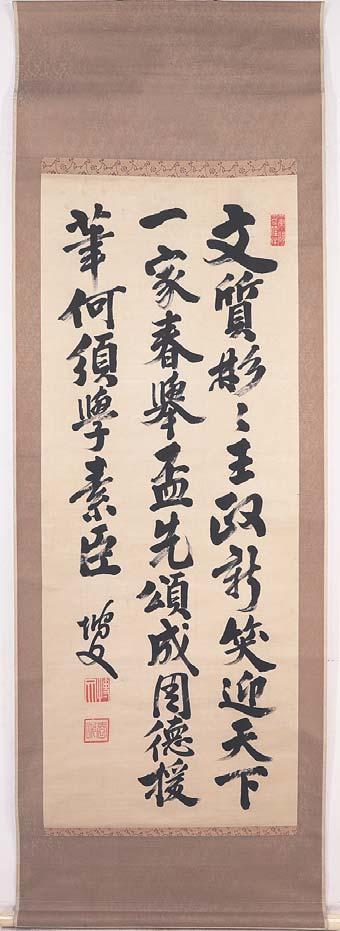 文質彬〻王政新笑迎天下
一家春舉盃先頌成周德援
筆何須學素臣